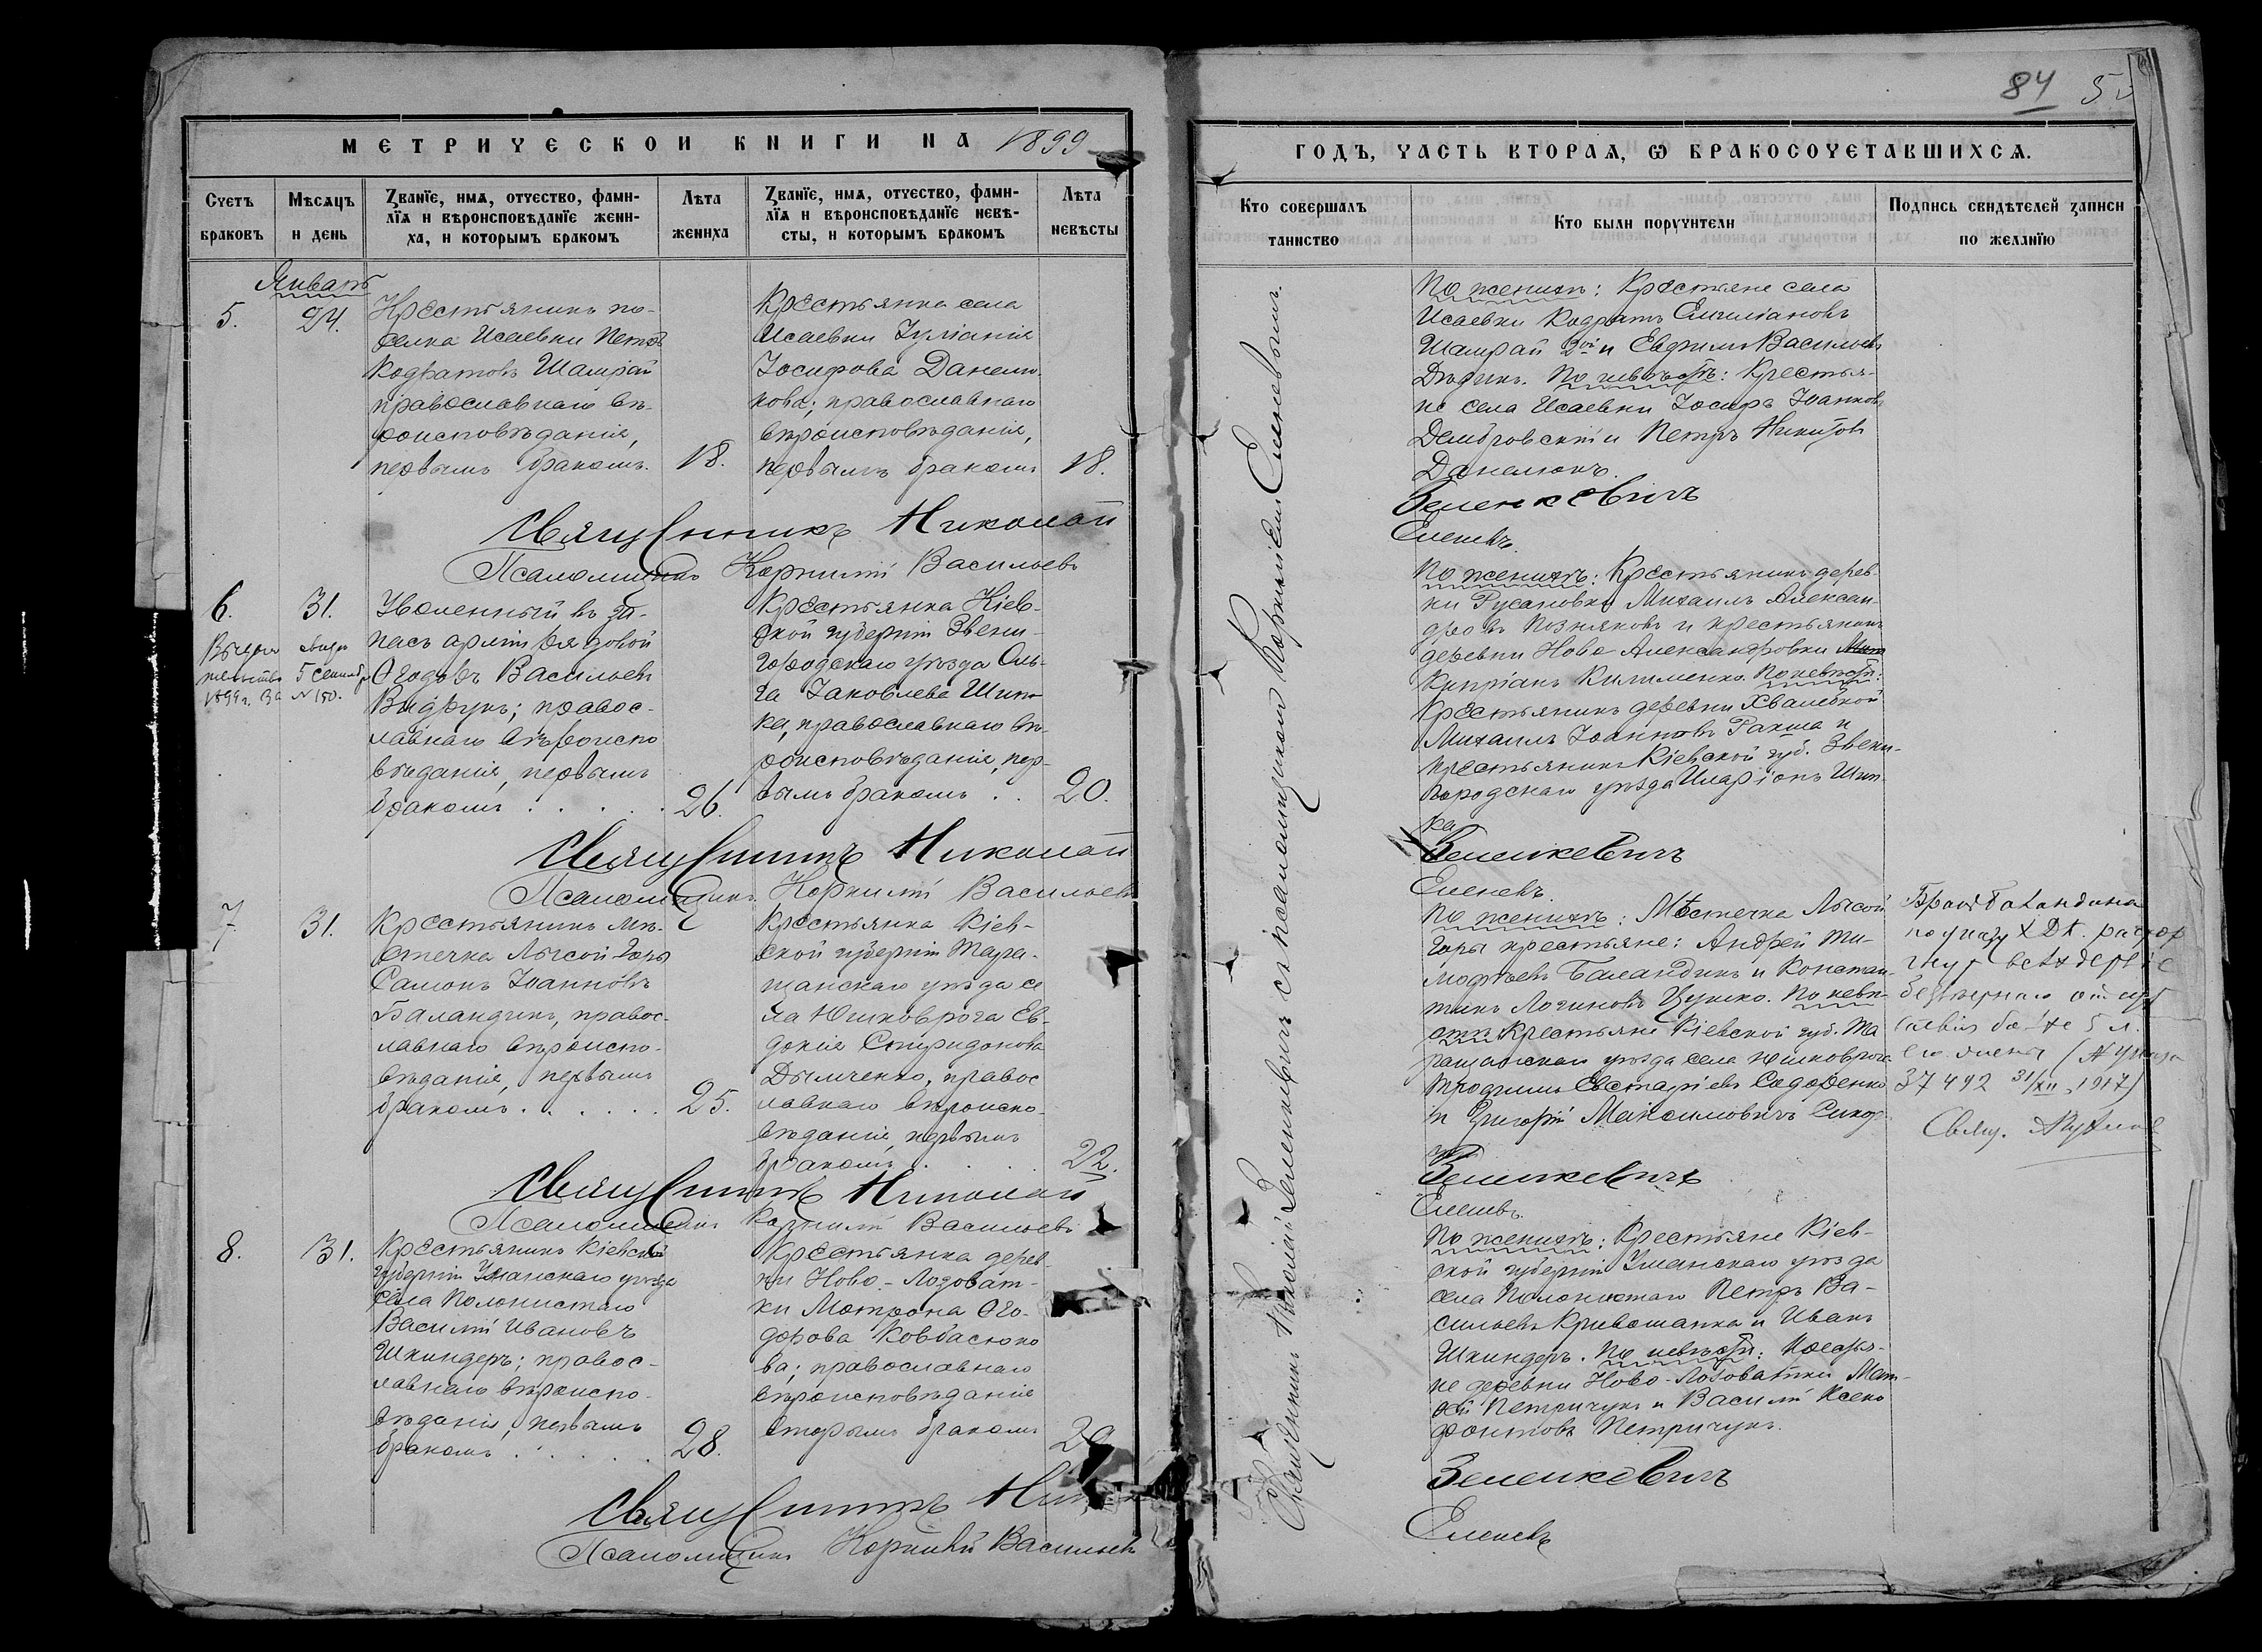 84
МЕТРИЧЕСКОЙ КНИГИ НА 1899
ГОДЪ, ЧАСТЬ ВТОРАѦ, Ѡ БРАКОСОЧЕТАВШИХСѦ.
Счетъ браковъ
Мѣсяцъ и день
Званїе, имѧ, отчество, фами-
лїѧ и вѣроисповѣданїе жени-
ха, и которымъ бракомъ
Лѣта жениха
Званїе, имѧ, отчество, фами-
лїѧ и вѣроисповѣданїе невѣ-
сты, и которымъ бракомъ
Лѣта невѣсты
Кто совершалъ таинство
Кто были поручители
Подпись свидѣтелей записи по желанїю
Январь
5.
24.
Крестьянинъ по-
селка Исаевки Петръ
Кодратовъ Шамрай
православнаго вѣ-
роисповѣданія,
первымъ бракомъ.
18.
Крестьянка села
Исаевки Іуліанія
Іосифова Данелю-
кова; православнаго
вѣроисповѣданія,
первымъ бракомъ
18.
По женихѣ: Крестьяне села
Исаевки Кодратъ Емиліановъ
Шамрай 2ой и Евфимъ Васильевъ
Дѣдикъ. По невѣстѣ: Крестья-
не села Исаевки Іосифъ Іоанновъ
Домбровскій и Петръ Никитовъ
Данелюкъ.
Священникъ Николай Зеленкевичъ
Псаломщикъ Корнилій Васильевъ Еленевъ.
6.
31.
Выдан свидѣ
тельство 5 Сентября
1899 г. За № 150.
Уволенный въ за-
пасъ арміи рядовой
Ѳеодоръ Васильевъ
Видрукъ; правос-
лавнаго вѣроиспо
вѣданія, первымъ
бракомъ . . . . .
26.
Крестьянка Кіев-
ской губерніи Звени-
городскаго уѣзда Оль-
га Іаковлева Шип-
ка, православнаго вѣ-
роисповѣданія, пер-
вымъ бракомъ . .
20.
По женихѣ: Крестьянинъ дерев-
ни Русановки Михаилъ Алексан-
дровъ Позняковъ и крестьянинъ
деревни Ново-Александровки
Кипріанъ Килименко. По невѣстѣ:
Крестьянинъ деревни Хвалебной
Михаилъ Іоанновъ Ракша и
крестьянинъ Кіевской губ. Звени-
городскаго уѣзда Иларіонъ Шип-
ка
Священникъ Николай Зеленкевичъ
Псаломщикъ Корнилій Васильевъ Еленевъ.
7
31.
Крестьянинъ мѣ-
стечка Лысой Горы
Самонъ Іоанновъ
Баландинъ, правос-
лавнаго вѣроиспо-
вѣданія, первымъ
бракомъ . . . . . .
25.
Крестьянка Кіев-
ской губерніи Тара-
щанскаго уѣзда се
ла Юшковрога Ев-
докія Спиридонова
Дымченко, правос
лавнаго вѣроиспо-
вѣданія, первымъ
бракомъ . . . .
22.
По женихѣ: Мѣстечка Лысой
Горы крестьяне: Андрей Ти-
мофѣевъ Баландинъ и Констан-
тинъ Логиновъ Цушко. По невѣ-
стѣ: Крестьяне Кіевской губ. Та
ращанскаго уѣзда села Юшковрога
Трофимъ Евстафіевъ Содоренко
и Григорій Максимовичъ Сикор
Бракъ Баландина
по указу Х. Д. К. расторг
безвѣстнаго отсут
ствія болѣе 5 л.
его жены (№ указа
37492 31/XII, 1917)
Свящ.
Священникъ Николай Зеленкевичъ
Псаломщикъ Корнилій Васильевъ Еленевъ.
8.
31.
Крестьянинъ Кіевской
губерніи Уманскаго уѣзда
села Полонистаго
Василій Ивановъ
Шкиндеръ; правос-
лавнаго вѣроиспо-
вѣданія, первымъ
бракомъ . . . . .
28.
Крестьянка дерев-
ни Ново-Лозоват-
ки Мотрона Ѳео-
дорова Ковбасюко
ва; православнаго
вѣроисповѣданія
вторымъ бракомъ
По женихѣ: Крестьяне Кіев-
ской губерніи Уманскаго уѣзда
села Полонистаго Петръ Ва-
сильевъ Кривошапка и Иванъ
Шкиндеръ. По невѣстѣ: Крестья-
не деревни Ново-Лозоватки Мат-
ѳей Петричукъ и Василій Ксено
фонтовъ Петричукъ.
Священникъ Николай Зеленкевичъ
Псаломщикъ Корнилій Васильевъ Еленевъ
Священникъ Николай Зеленкевичъ съ псаломщикомъ Корниліемъ Еленевымъ.